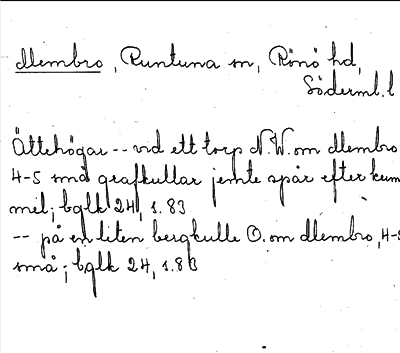 Membro, Runtuna sn, Rönö hd,
Söderml. l
Ättehögar -- vid ett torp N.W. om Membro
4-5 små grafkullar jemte spår efter kum
mel; bglk 24, s. 83
-- på en liten bergkulle O. om Membro, 4-5
små; bglk 24, s. 83